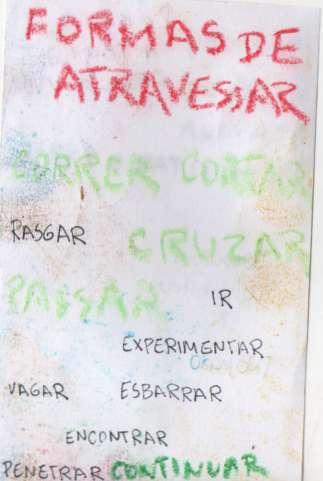 FORMAS DE
ATRAVESSAR
CORRER CORTAR
RASGAR
CRUZAR
PASSAR
IR
EXPERIMENTAR
VAGAR ESBARRAR
ENCONTRAR
PENETRAR CONTINUAR